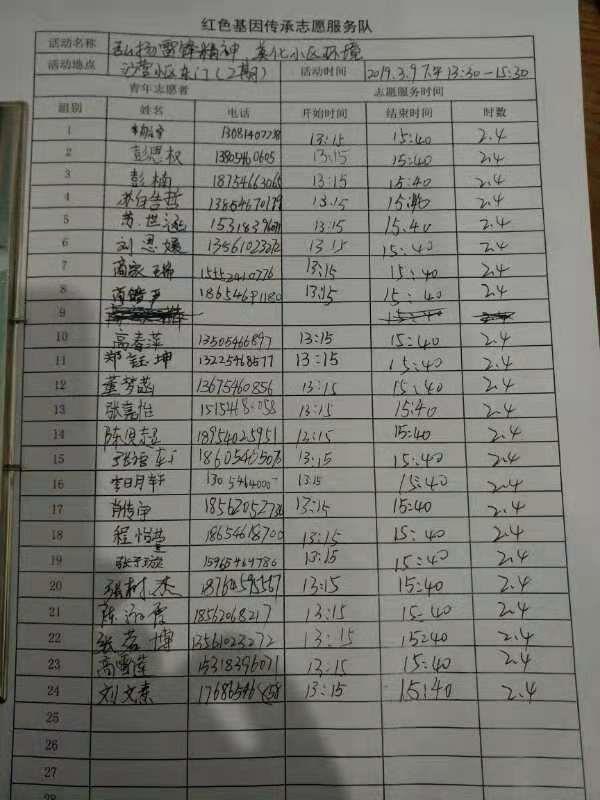 红色基因传承志愿服务队
活动名称 弘扬雷锋精神 美化小区环境
活动地点 小区东门(2期) 活动时间 2019.3.9下午13:30-15:30
青年志愿者 志愿服务时间
组别 姓名 电话 开始时间 结束时间 时数
1 13:15 15:40 2.4
2 彭恩权 13805460605 13:15 15:40 2.4
3 彭楠 18754663065 13:15 15:40 2.4
4 13:15 15:40 2.4
5 13:15 15:40 2.4
6 刘恩媛 13561023272 13:15 15:40 2.4
7 13:15 15:40 2.4
8 13:15 15:40 2.4
9 15:40
10 高春萍 13505466897 13:15 15:40 2.4
11 郑钰坤 13225468577 13:15 15:40 2.4
12 董梦菡 13675460856 13:15 15:40 2.4
13 张嘉怡 13:15 15:40 2.4
14 18954025951 12:15 15:40 2.4
15 13:15 15:40 2.4
16 13:15 15:40 2.4
17 13:15 15:40 2.4
18 程怡萱 18654618700 13:15 15:40 2.4
19 张子璇 15965464786 13:15 15:40 2.4
20 张树杰 18764595567 13:15 15:40 2.4
21 18562068217 13:15 15:40 2.4
22 张若博 13561023272 13:15 15:40 2.4
23 高雪莲 15318396071 13:15 15:40 2.4
24 刘文素 13:15 15:40 2.4
25
26
27
28